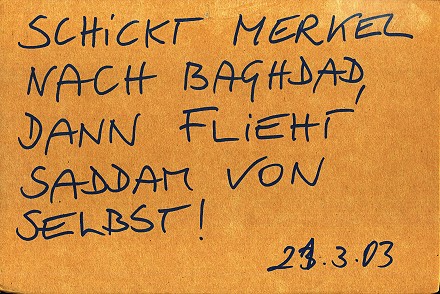 SCHiCKT MERKEL
NACH BAGHDAD,
DANN FLiEHT
SADDAM VON
SELBST!
.3.03